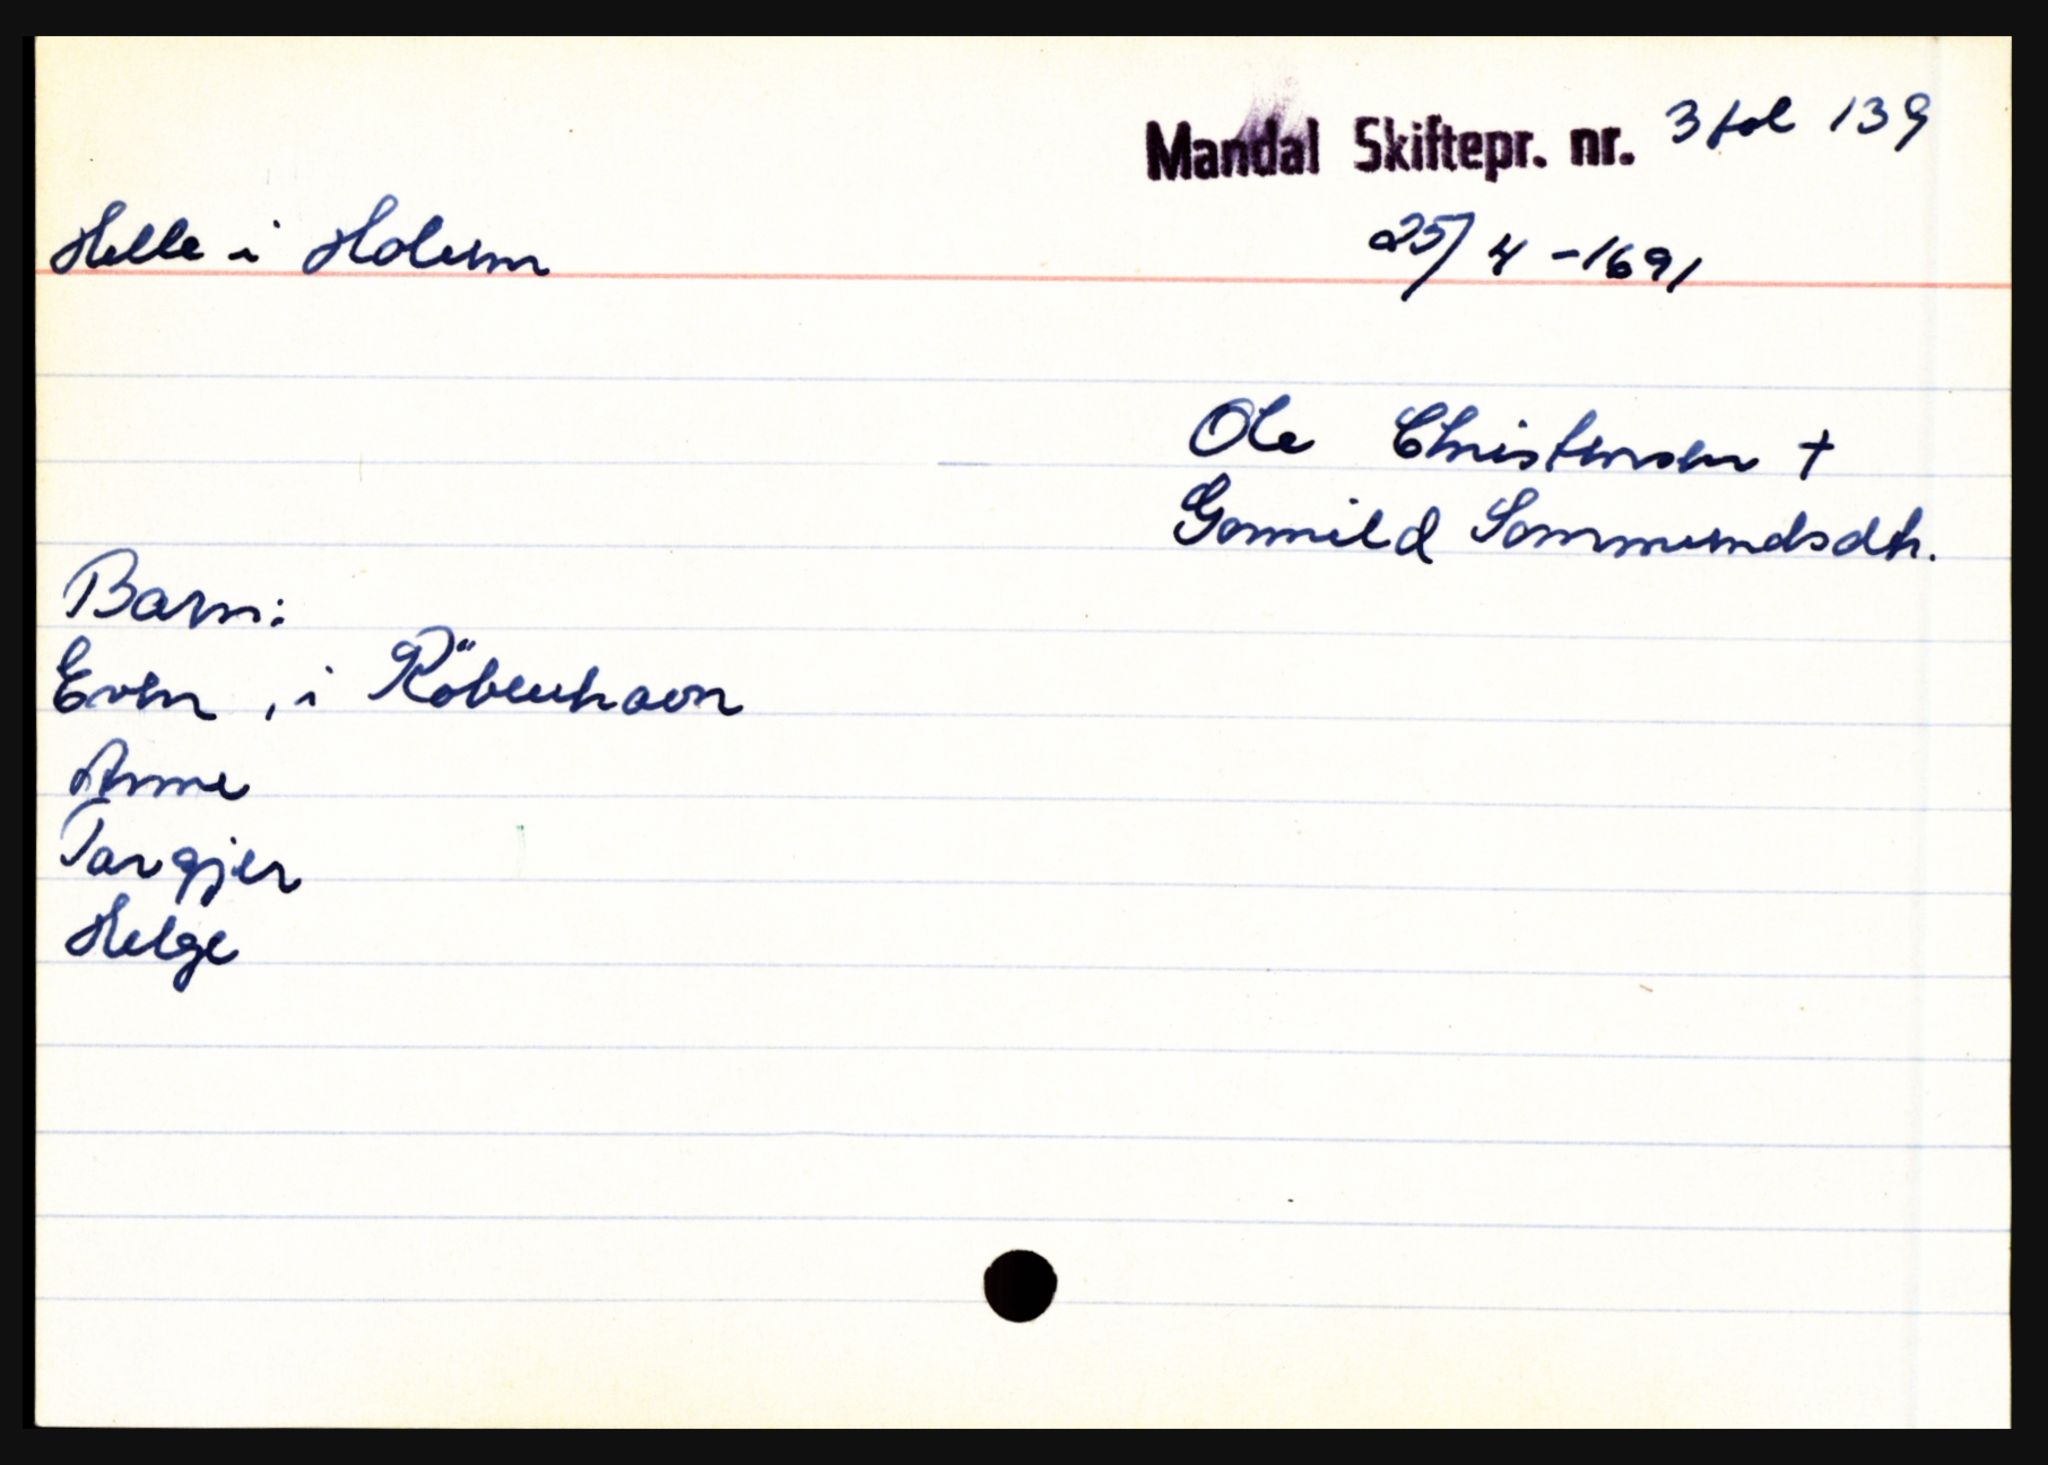 Mandal Skiftepr. nr. 3 fol 139
Helle i Holum
25/4 - 1691
Ole Christensen +
Gonnild Sommundsdtr.
Barn:
Even, i Köbenhavn
Anne
Targjer
Helge